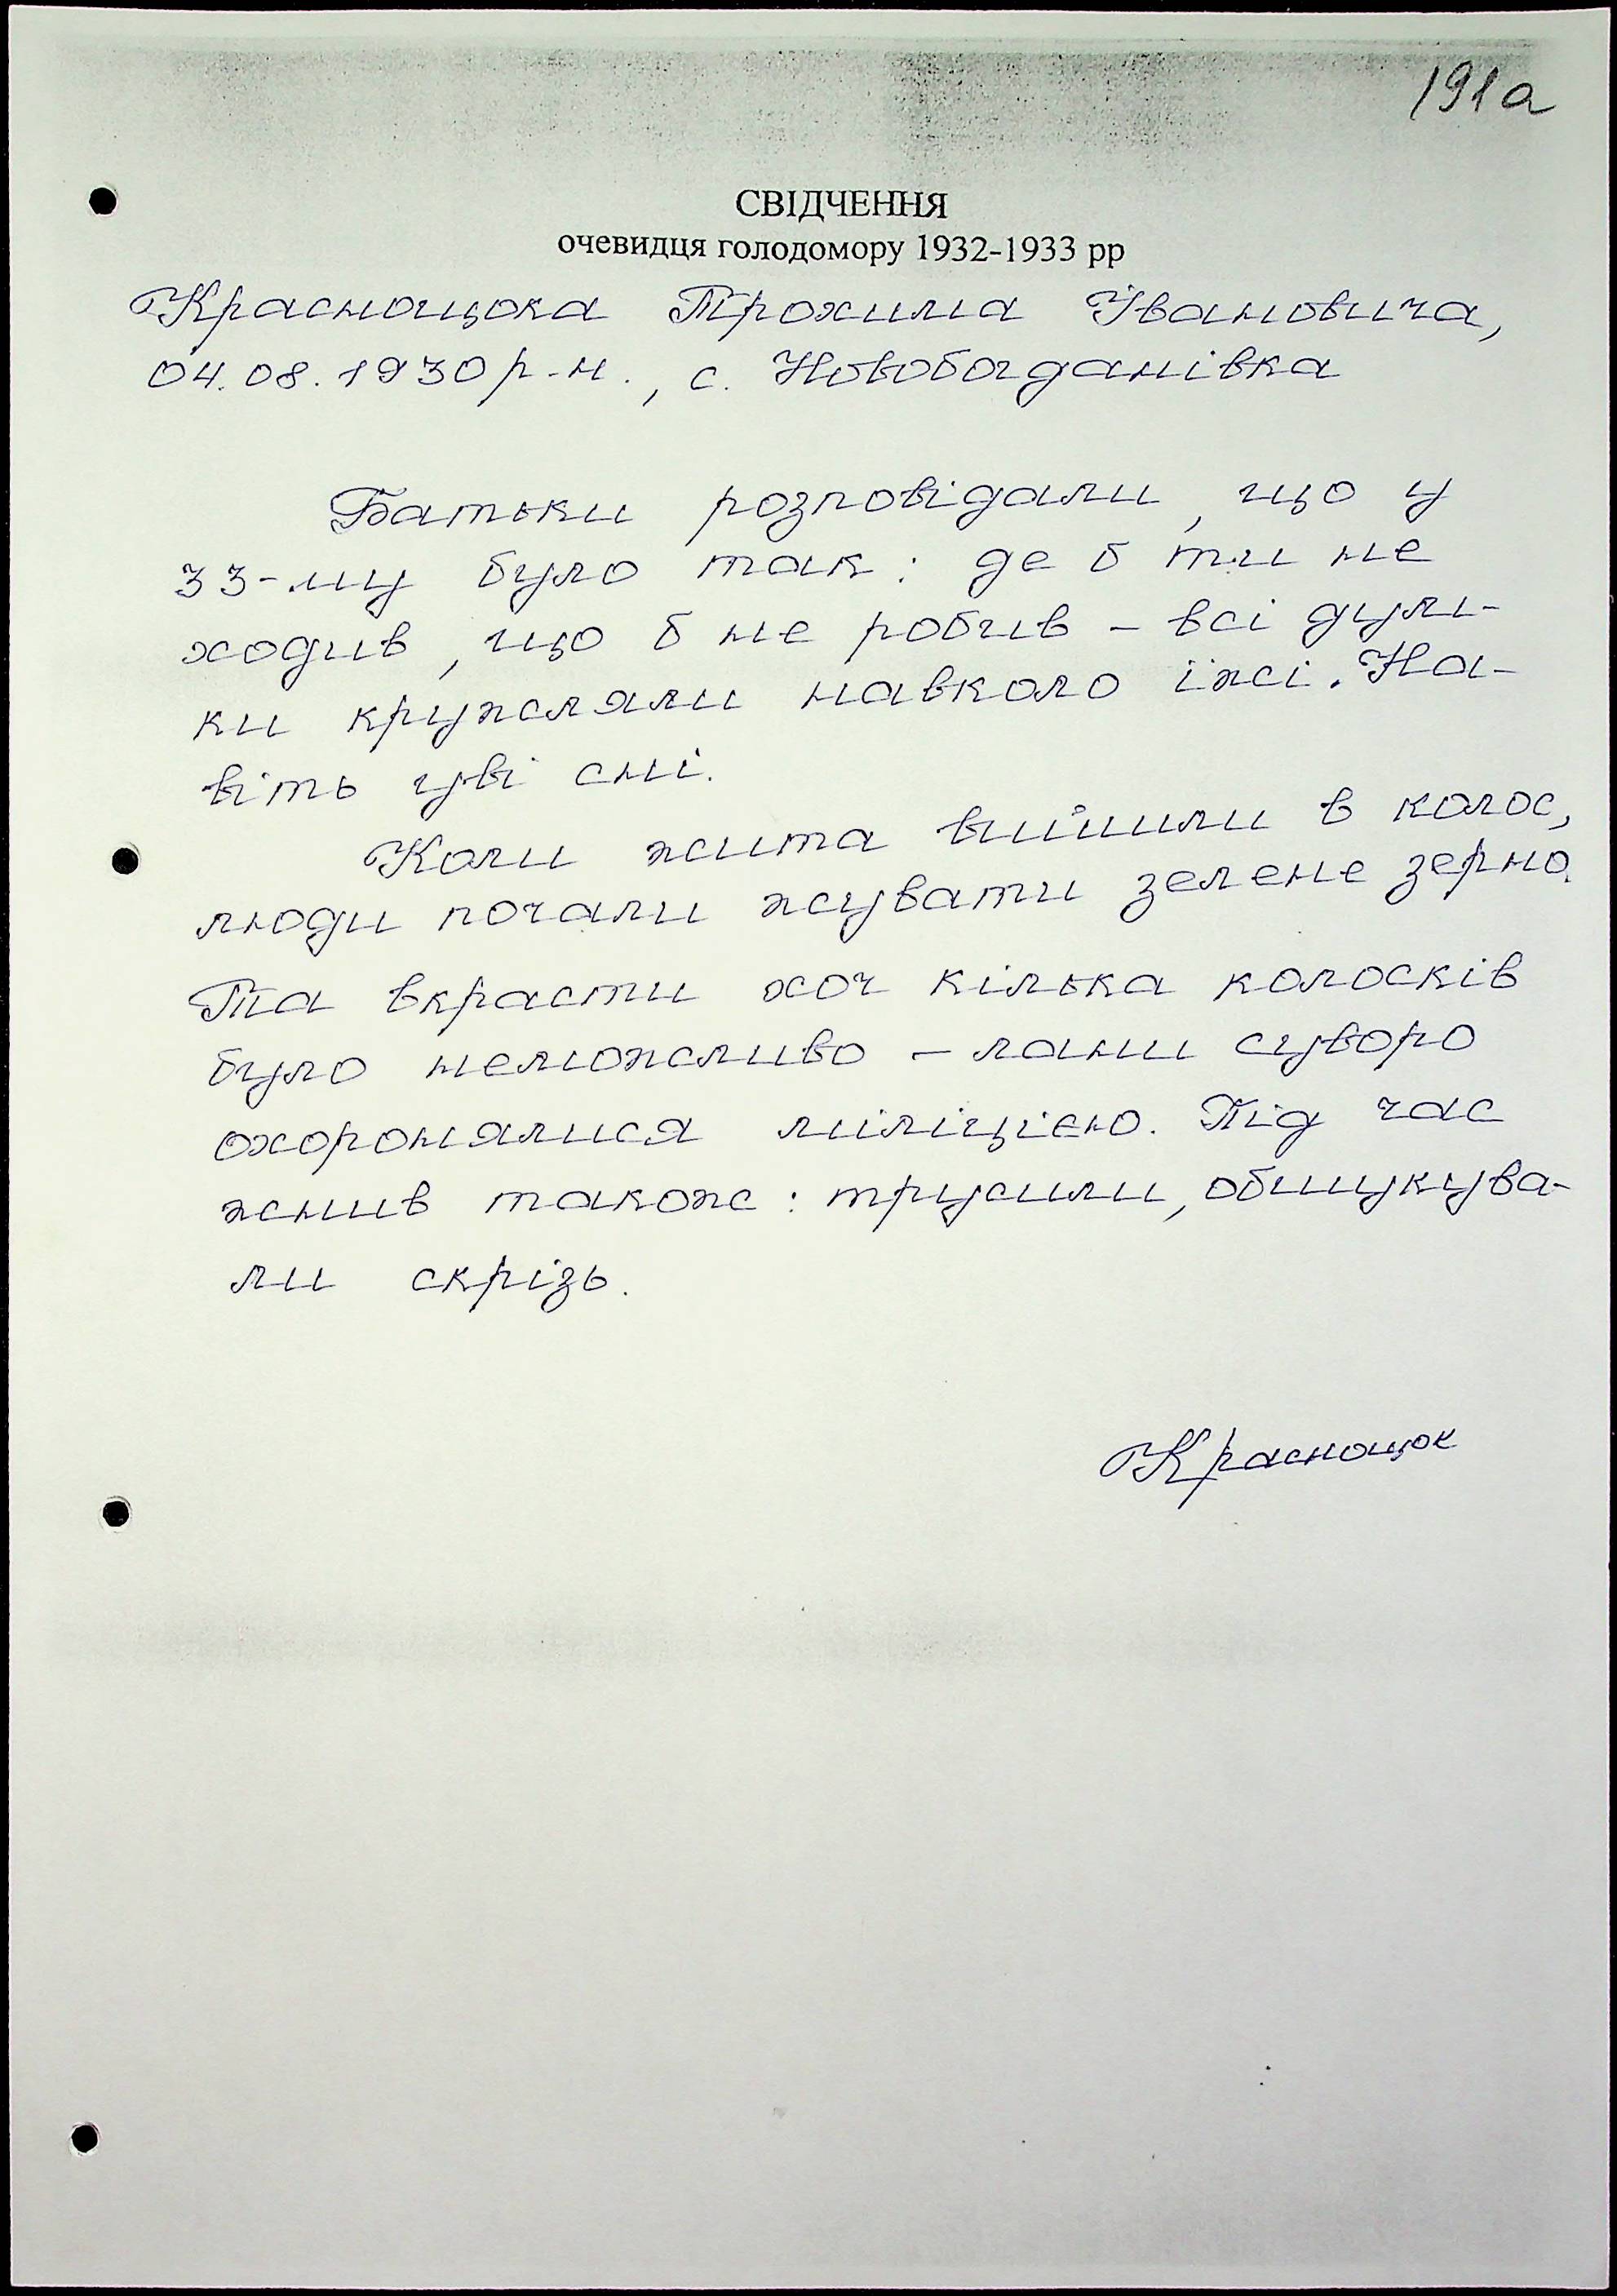 191а
СВІДЧЕННЯ
очевидця голодомору 1932-1933 рр
Краснощока Трохима Івановича,
04.08.1930 р-н., с. Новобогданівка
Батьки розповідали, що у
33-му було так: де б ти не
ходив, що б не робив – всі дум-
ки кружляли навколо їжі. На-
віть уві сні.
Коли жита вийшли в колос,
люди почали жувати зелене зерно.
Та вкрасти хоч кілька колосків
було неможливо – лани суворо
охоронялися міліцією. Під час
жнив також: трусили, обшукува-
ли скрізь.
Краснощок